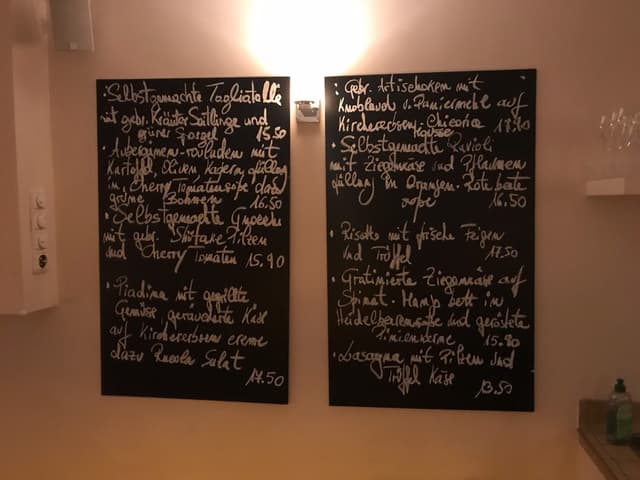 · Selbstgemachte Tagliatelle
mit gebr. Kräuter Saitlinge und
grüner Spargel 15.50
· Auberginen-rouladen mit
Kartoffel, Oliven kapern füllung
in Cherry Tomatensoße dazu
grüne Bohnen 16.50
· Selbstgemachte Gnocchi
mit gebr. Shiitake Pilzen
und Cherry Tomaten 15.90
· Piadina mit gegrillte
Gemüse geräucherte Käse
auf Kirchererbsen creme
dazu Rucola Salat
17.50
· Gebr. Artischoken mit
Knoblauch u. Paniermehl auf
Kirchererbsen-Chicorée
17.40
· Selbstgemachte Ravioli
mit Ziegenkäse und Pflaumen
füllung in Orangen-Rote beete
soße 16.50
· Risotto mit frische Feigen
und Trüffel 17.50
· Gratinierte Ziegenkäse auf
Spinat-Mango bett in
Heidelbeerensoße und geröstete
Pinienkerne 15.80
· Lasagna mit Pilzen und
Trüffel Käse
13.50